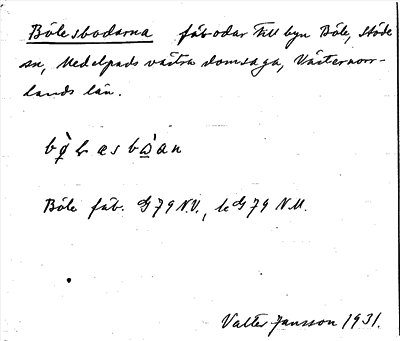 Bölesbodarna fäbodar till byn Böle, Stöde
sn, Medelpads västra domsaga, Västernorr-
lands län.
Böle fäb. G 79 N.V., k G 79 N.V.
Valter Jansson 1931.